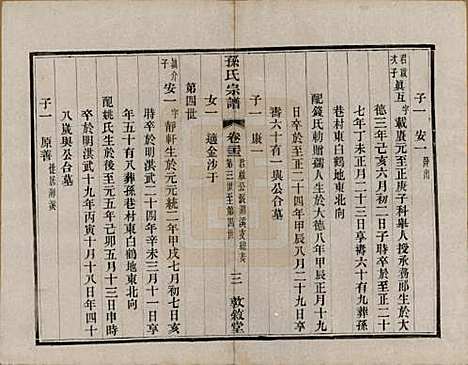 子一 安一
君瑞次子
眞互 字載賡元至正庚子科舉人授承務郎生於大
德三年己亥六月初二日子時卒於至正二十
七年丁未十二月二十三日享壽六十有九葬孫
巷村東白鶴地東北向
配錢氏朝贈孺人生於大德八年甲辰正月十九
日卒於至正二十四年甲辰八月二十二日享
壽六十有一與公合墓
子一 康一
女一 適金沙于
孫氏宗譜
卷三
君瑞公派湖溪支總表
第三世至第四世
三
敦敘堂
第四世
安一 字靜軒生於元元統二年甲戌七月初七日亥
時卒於明洪武二十四年辛未三月十一日享
年五十有八葬孫巷村東白鶴地東北向
配姚氏生於至元五年己卯五月十三日申時
卒於明洪武十九年丙寅十月十八日年四十
八歲與公合墓
子一 原善 徙居湖溪